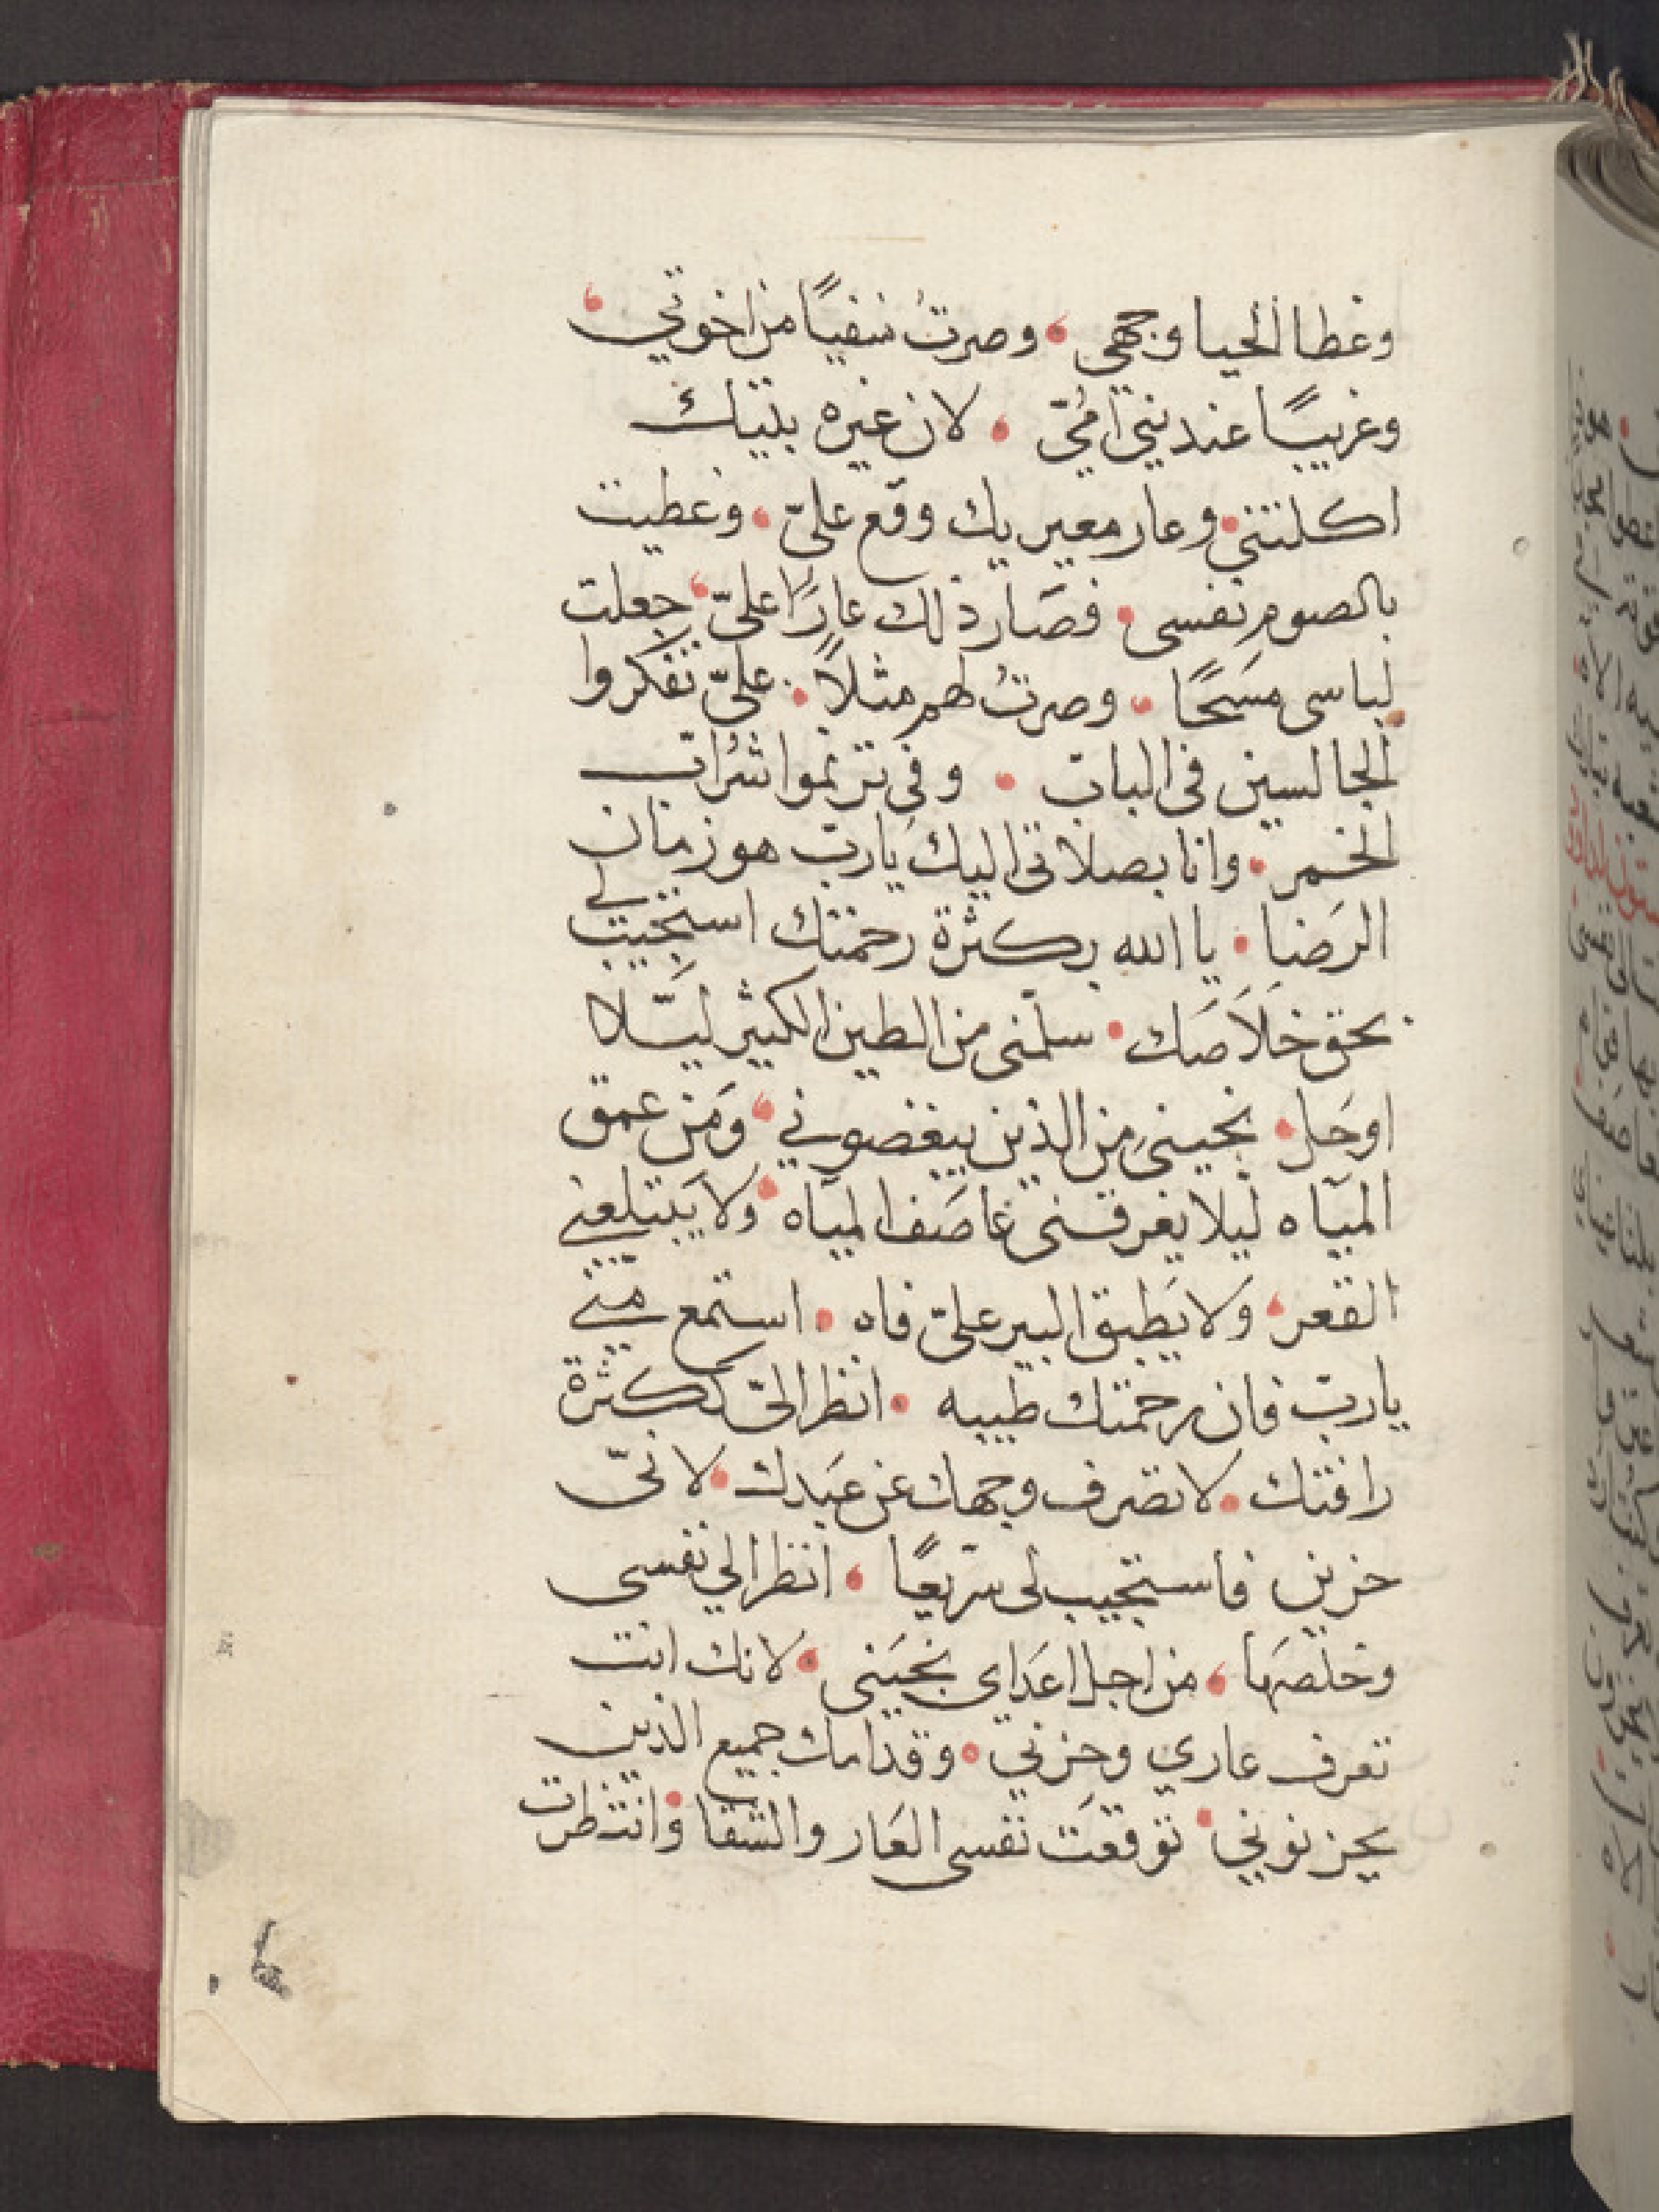 وغطا الحيا وجهى ، وصرتُ منفيًا من اخوتي ،
وغريبًا عند بني امُيّ ، لان غيره بيتك
اكلتني ، وعار معيريك وقع علىّ ، وغطيت
بالصوم نفسى ، فصَار ذلك عارًا علىّ ، جعلت
لباسى مسَحًا ، وصرتُ لهم مثلاً ، علىّ تفكروا
الجالسين فى الباب ، وفى ترنموا شُرّاب
الخمر ، وانا بصلاتى اليك يَارب هو زمان
الرَضا ، يا الله بكثرة رحمتك استجيب لى
بحق خلَاصَك ، سلّمنى من الطين الكثير ليَّلا
اوحَل ، نجينى من الذين يبغضوني ، وَمن عمق
الميَاه ليلا يغرقنى عاصَف المياه ، وَلا يَبتلعني
القعر ، وَلا يَطبق البير علىّ فاه ، استمع منّي
يارب فان رحمتك طيبه ، انظر الىّ ككثرة
رافتك ، لا تصرف وجهك عن عَبدك ، لانىّ
حزين فاستجيب لى سَريعًا ، انظر الي نفسى
وخلّصهَا ، من اجل اعَداى نجيَنى ، لانك انت
تعرف عاري وحزني ، وقدامك جميع الذين
يحزنوني ، توقعَت نفسى العَار والشقا ، وَانتظرت